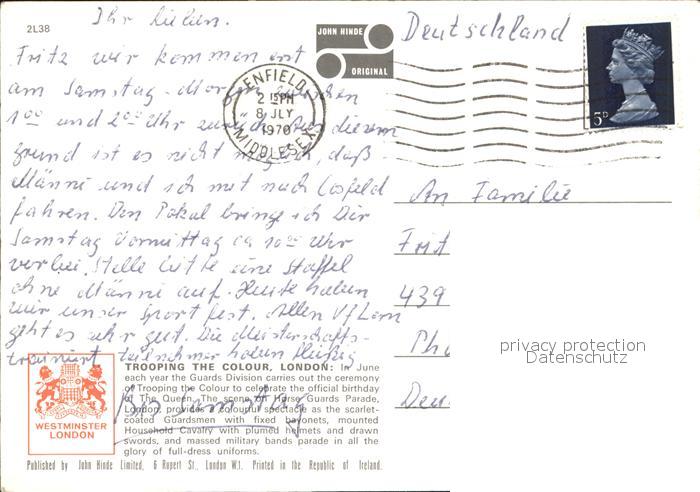 2L38
Ihr Lieben.
Fritz wir kommen erst
am Samstag-Morgen zwischen
1°° und 2°° Uhr zurück. Aus diesem
grund ist es nicht möglich daß
Männi und ich mit nach Cosfeld
fahren. Den Pokal bringe ich Dir
Samstag Vormittag ca 10°° Uhr
vorbei. Stelle bitte eine Staffel
ohne Männi auf. Heute haben
wir unser Sportfest. Allen VfLern
geht es sehr gut. Die Meisterschafts-
teilnehmer haben fleißig
trainiert
Bis Samstag
JOHN HINDE
ORIGINAL
ENFIELD
2 15 PM
8 JLY
1970
MIDDLESEX
5D
Deutschland
An Familie
Frit
439
Deu
privacy protection
Datenschutz
WESTMINSTER
LONDON
TROOPING THE COLOUR, LONDON: In June
each year the Guards Division carries out the ceremony
of Trooping the Colour to celebrate the official birthday
of The Queen. The scene on Horse Guards Parade,
London, provides a colourful spectacle as the scarlet-
coated Guardsmen with fixed bayonets, mounted
Household Cavalry with plumed helmets and drawn
swords, and massed military bands parade in all the
glory of full-dress uniforms.
Published by John Hinde Limited, 6 Rupert St., London W.1. Printed in the Republic of Ireland.